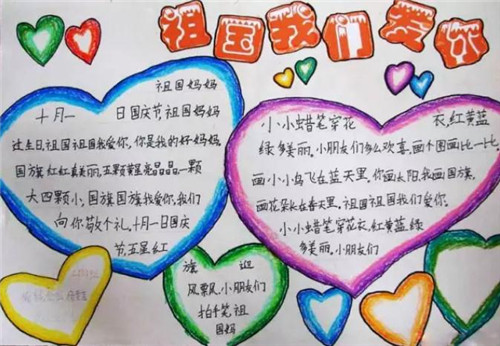 祖国我们爱你
祖国妈妈
十月一日国庆节祖国妈妈
过生日祖国祖国我爱你,你是我的好妈妈,
国旗红红真美丽,五颗黄星亮晶晶一颗
大四颗小,国旗国旗我爱你,我们
向你敬个礼,十月一日国庆
节,五星红
小小蜡笔穿花衣,红黄蓝
绿多美丽,小朋友们多么欢喜,画个图画比一比,
画小小鸟飞在蓝天里,你画太阳,我画国旗,
画花朵长在春天里,祖国祖国我们爱你,
小小蜡笔穿花衣,红黄蓝绿
多美丽,小朋友们
旗迎
风飘飘,小朋友们
拍手笑祖
国妈